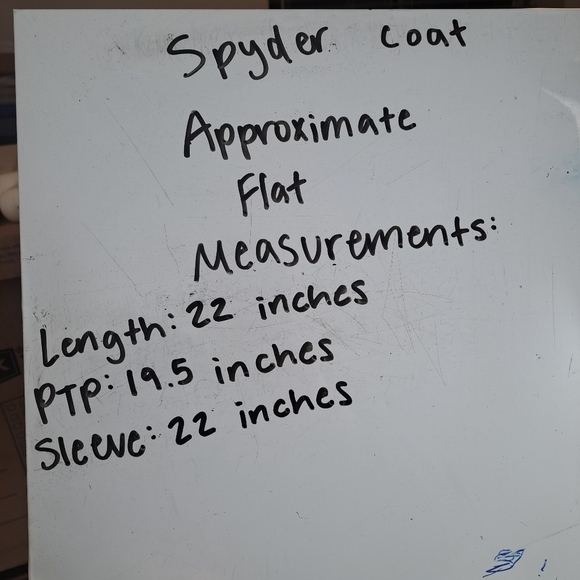 Spyder coat
Approximate
Flat
Measurements:
Length: 22 inches
PTP: 19.5 inches
Sleeve: 22 inches